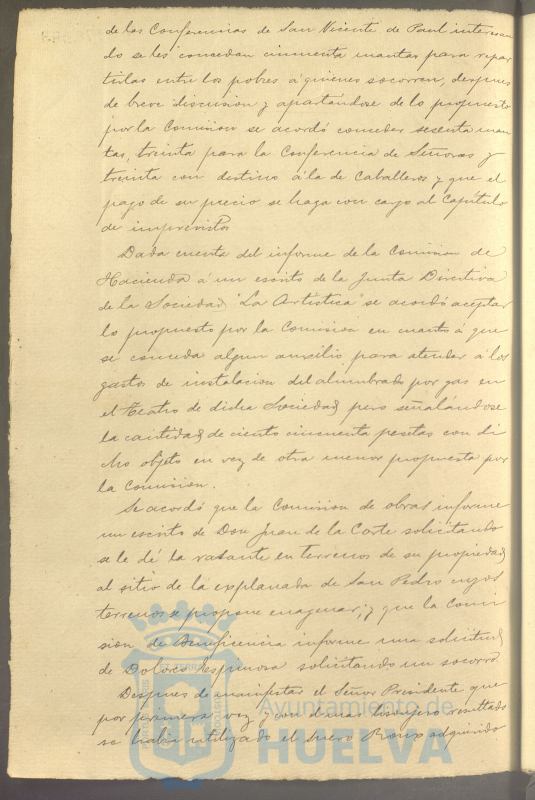 de las Conferencias de San Vicente de Paul interesan
do se les concedan cincuenta mantas para repar
tirlas entre los pobres á quienes socorren, despues
de breve discusion y apartándose de lo propuesto
por la Comision se acordó conceder sesenta man
tas, treinta para la Conferencia de Señoras y
treinta con destino á la de Caballeros y que el
pago de su precio se haga con cargo al Capítulo
de imprevistos
Dada cuenta del informe de la Comision de
Hacienda á un escrito de la Junta Directiva
de la Sociedad "La Artistica" se acordó aceptar
lo propuesto por la Comision en cuanto á que
se conceda algun auxilio para atender á los
gastos de instalacion del alumbrado por gas en
el Teatro de dicha Sociedad pero señalándose
la cantidad de ciento cincuenta pesetas con di
cho objeto en vez de otra menor propuesta por
la Comision.
Se acordó que la Comision de obras informe
un escrito de Don Juan de la Corte solicitando
se le dé la rasante en terrenos de su propiedad
al sitio de la explanada de San Pedro cuyos
terrenos se propone enagenar, y que la Comi
sion de Beneficencia informe una solicitud
de Dolores Espinosa solicitando un socorro
Despues de manifestar el Señor Presidente que
por primera vez y con d lisongero resultado
se habia utilizado el suero Roux adquirido
Ayuntamiento de
HUELVA